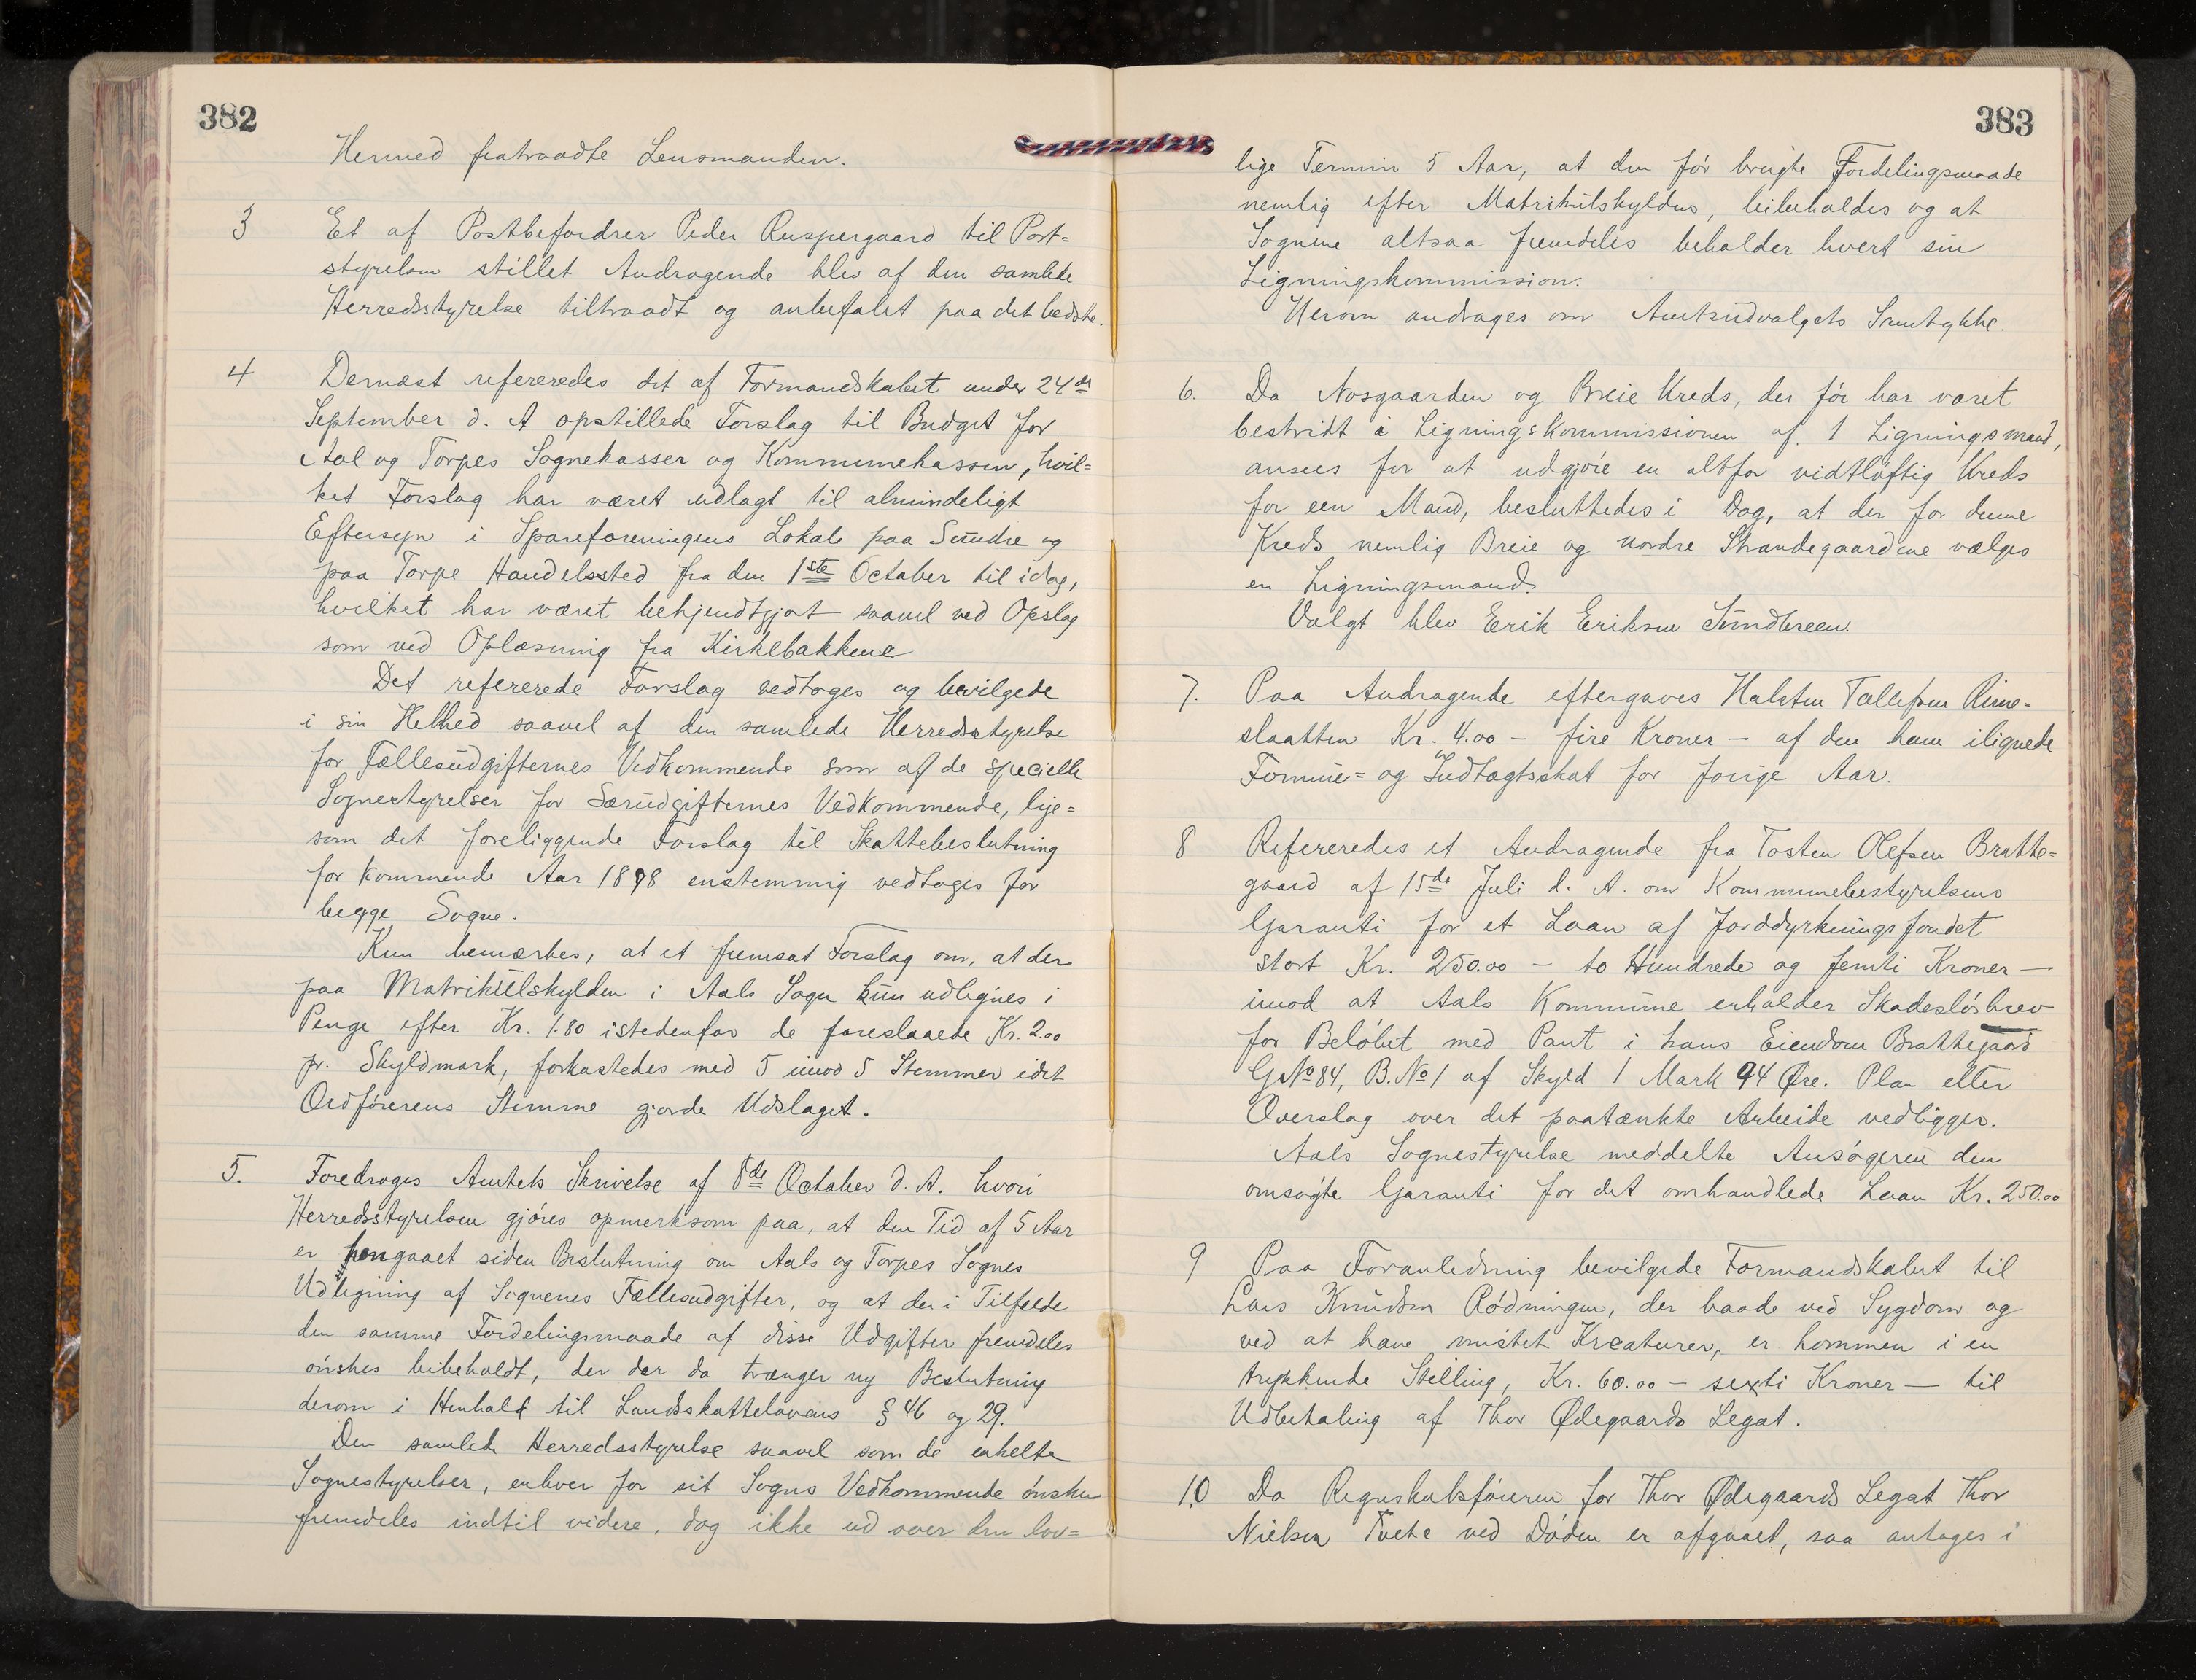 382
Hermed fratraadte Lensmanden.
3 Et af Postbefordrer Peder Ruspergaard til Post=
styrelsen stillet Andragende blev af den samlede
Herredsstyrelse tiltraadt og anbefalet paa det bedste.
4 Dernæst refereredes det af Formandskabet under 24de
September d. A opstillede Forslag til Budget for
Aal og Torpes Sognekasser og Kommunekassen, hvil=
ket Forslag har været udlagt til almindeligt
Eftersyn i Spareforeningens Lokale paa Sundre og
paa Torpe Handelssted fra den 1ste October til idag,
hvilket har været bekjendtgjort saavel ved Opslag
som ved Oplæsning fra Kirkebakkene
Det refererede Forslag vedtoges og bevilgede
i sin Helhed saavel af den samlede Herredsstyrelse
for Fællesudgifternes Vedkommende som af de specielle
Sognestyrelser for Særudgifternes Vedkommende, lige=
som det foreliggende Forslag til Skattebeslutning
for kommende Aar 1898 enstemmig vedtoges for
begge Sogne.
Kun bemærkes, at et fremsat Forslag om, at der
paa Matrikülskylden i Aals Sogn kun udlignes i
Penge efter Kr. 1.80 istedenfor de foreslaaede Kr. 2.00
pr. Skyldmark, forkastedes med 5 imod 5 Stemmer idet
Ordførerens Stemme gjorde Udslaget.
5. Foredroges Amtets Skrivelse af 8de October d. A. hvori
Herredsstyrelsen gjøres opmerksom paa, at den Tid af 5 Aar
er hengaaet siden Beslutning om Aals og Torpes Sognes
Udligning af Sognenes Fællesudgifter, og at der i Tilfælde
den samme Fordelingsmaade af disse Udgifter fremdeles
ønskes bibeholdt, der der da trænger ny Beslutning
derom i Henhold til Landsskattelovens § 46 og 29.
Den samlede Herredsstyrelse saavel som de enkelte
Sognestyrelser, enhver for sit Sogns Vedkommende ønsker
fremdeles indtil videre, dog ikke ud over den lov=
383
lige Termin 5 Aar, at den før brugte Fordelingsmaade
nemlig efter Matrikulskylden, bibeholdes og at
Sognene altsaa fremdeles beholder hvert sin
Ligningskommission.
Herom andrages om Amtsudvalgets Samtykke.
6. Da Nosgaarden og Breie Kreds, der før har været
bestridt i Ligningskommissionen af 1 Ligningsmand,
ansees for at udgjøre en altfor vidtløftig Kreds
for een Mand, besluttedes i Dag, at der for denne
Kreds nemlig Breie og nordre Strandegaardene vælges
en Ligningsmand.
Valgt blev Erik Eriksen Sundbreen.
7. Paa Andragende eftergaves Halsten Tollefsen Rime-
slaatten Kr. 4.00 – fire Kroner – af den ham ilignede
Formue= og Indtægtsskat for forige Aar.
8 Refereredes et Andragende fra Tosten Olefsen Bratte=
gaard af 15de Juli d. A. om Kommunebestyrelsens
Garanti for et Laan af Jorddyrkningsfondet
stort Kr. 250.00 – to Hundrede og femti Kroner –
imod at Aals Kommune erholder Skadesløsbrev
for Beløbet med Pant i hans Eiendom Brattegaard
G.No 84, B.No 1 af Skyld 1 Mark 94 Øre. Plan eller
Overslag over det paatænkte Arbeide vedligger.
Aals Sognestyrelse meddelte Ansøgeren den
omsøgte Garanti for det omhandlede Laan Kr. 250.00
9 Paa Foranledning bevilgede Formandskabet til
Lars Knudsen Rødningen, der baade ved Sygdom og
ved at have mistet Kreaturer, er kommen i en
trykkende Stilling, Kr. 60.00 – sexti Kroner – til
Udbetaling af Thor Ødegaards Legat.
10 Da Regnskabsføreren for Thor Ødegaards Legat Thor
Nielsen Tvete ved Døden er afgaaet, saa antages i